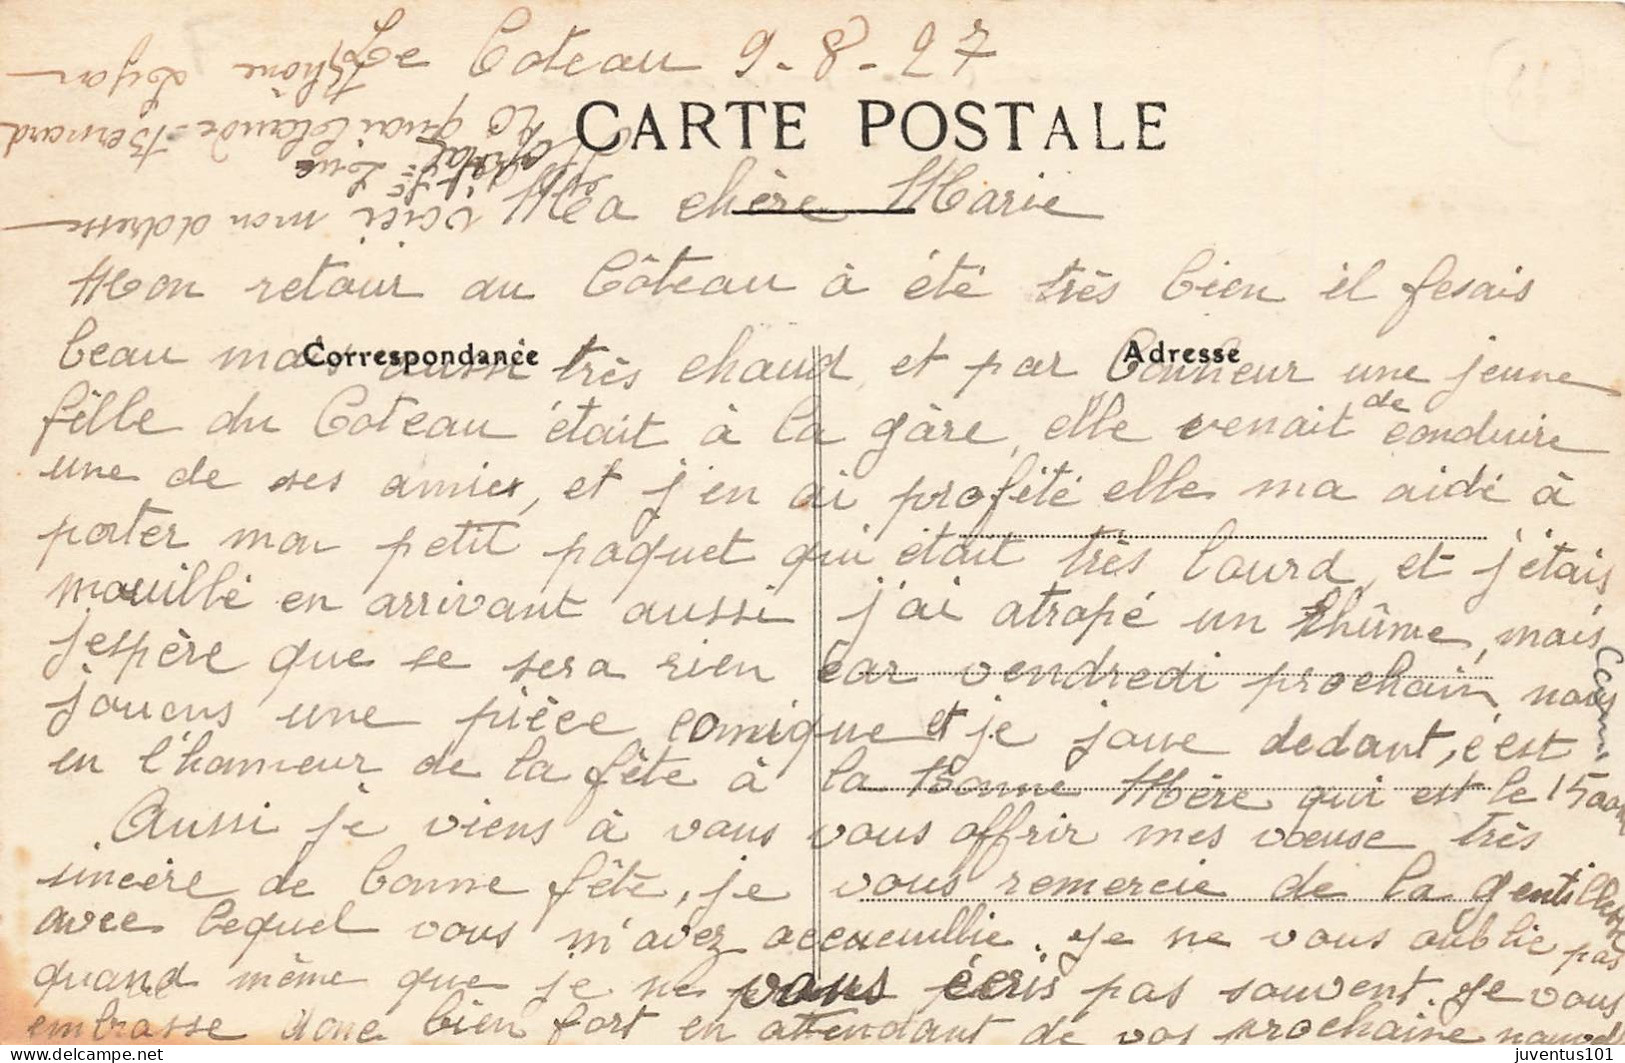 Le Coteau 9-8-27
CARTE POSTALE
Ma chère Marie
Mon retour au Côteau à été très bien il fesais
Correspondance
Adresse
beau mais aussi très chaud, et par bonheur une jeune
fille du Coteau était à la gâre, elle venait de conduire
une de ses amies, et j'en ai profité elle ma aidé à
porter mon petit paquet qui était très lourd, et j'étais
mouillé en arrivant aussi j'ai atrapé un rhûme, mais
jespère que se sera rien car vendredi prochain, nous
jouons une pièce comique et je joue dedant, c'est
en l'honneur de la fête à la Bonne Mère qui est le 15 aout
Aussi je viens à vous vous offrir mes vœuse très
sincère de bonne fête, je vous remercie de la gentillesse
avec lequel vous m'avez accueuillie. Je ne vous oublie pas
quand même que je ne vous écris pas souvent. Je vous
embrasse donc bien fort en attendant de vos prochaine nouvel
voici mon adresse
St Luc
20 quai Claude-Bernard
Rhône Lyon
juventus101